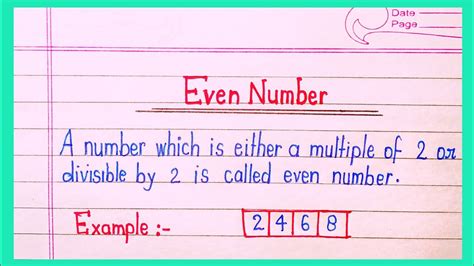 Date
Page
Even Number
A number which is either a multiple of 2 or
divisible by 2 is called even number.
Example :- 2 4 6 8